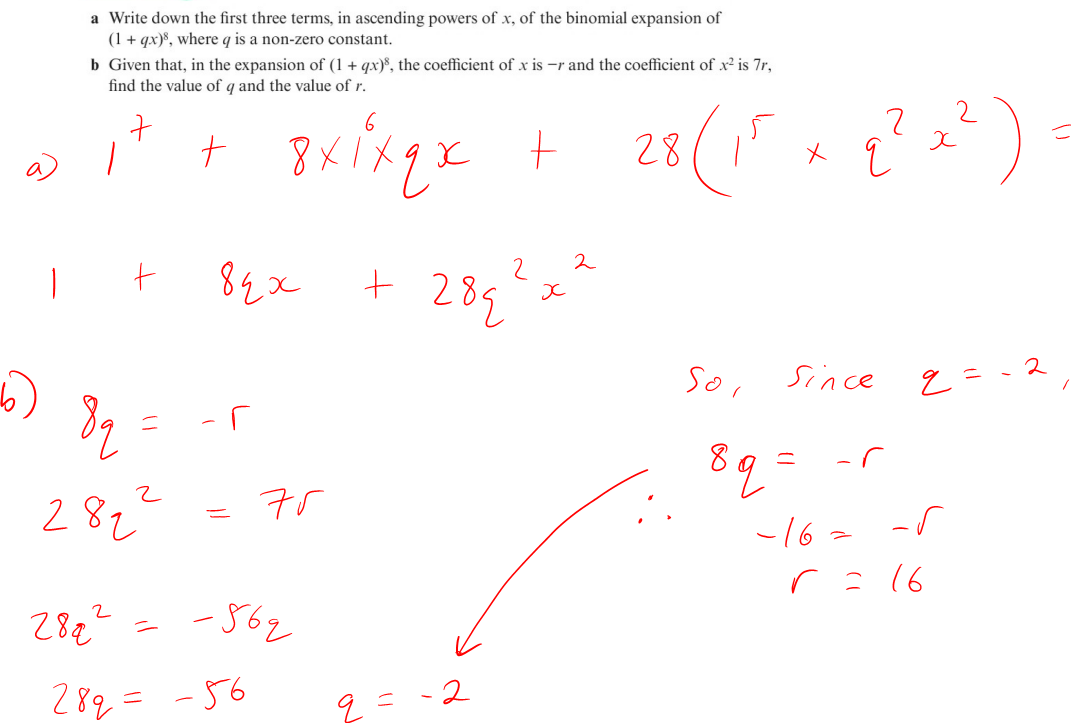 a Write down the first three terms, in ascending powers of x, of the binomial expansion of
(1 + qx)⁸, where q is a non-zero constant.
b Given that, in the expansion of (1 + qx)⁸, the coefficient of x is −r and the coefficient of x² is 7r,
find the value of q and the value of r.
a) 1⁷ + 8×1⁶×qx + 28(1⁵ × q²x²) =
1 + 8qx + 28q²x²
b) 8q = -r
28q² = 7r
28q² = -56q
28q = -56 q = -2
So, since q = -2,
8q = -r
∴ -16 = -r
r = 16